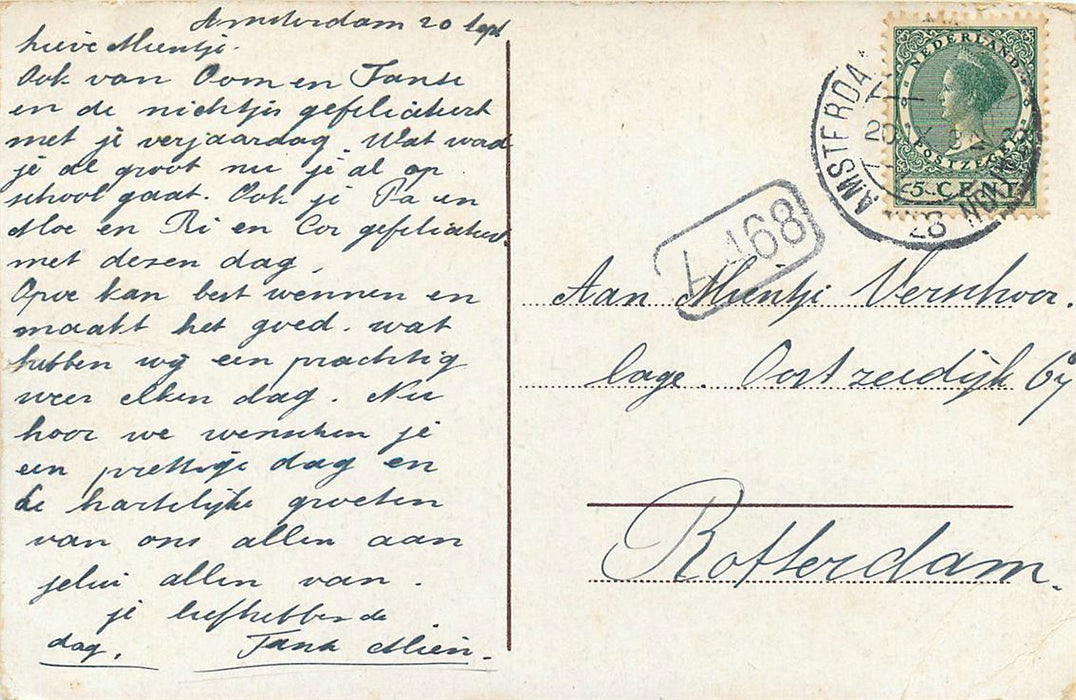 Amsterdam 20 Sept
Lieve Mientje.
Ook van Oom en Tante
en de nichtjes gefeliciteert
met je verjaardag. Wat word
je al groot nu je al op
school gaat. Ook je Pa en
Moe en Ri en Cor gefeliciteert
met dezen dag,
Opoe kan best wennen en
maakt het goed. wat
hebben wij een prachtig
weer elken dag. Nu
hoor we wenschen je
een prettige dag en
de hartelijke groeten
van ons allen aan
jelui allen van.
je liefhebbende
dag. Tante Mien.
NEDERLAND
POSTZEGEL
5 CENT
AMSTERDA
20
28
L 168
Aan Mientje Verschoor.
lage. Oostzeedijk
Rotterdam.